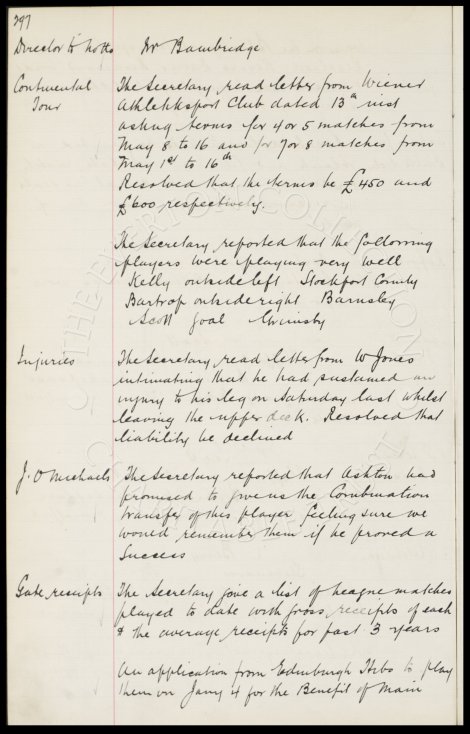 297
Director to Notts Mr Bainbridge
Continental Tour
The Secretary read letter from Wiener
Athletiksport Club dated 13th inst
asking terms for 4 or 5 matches from
May 8 to 16 and for 7 or 8 matches from
May 1st to 16th
Resolved that the terms be £450 and
£600 respectively.
The Secretary reported that the following
players were playing very well
Kelly outside left Stockport County
Bartrop outside right Barnsley
Scott Goal Grimsby
Injuries
The Secretary read letter from W Jones
intimating that he had sustained an
injury to his leg on Saturday last whilst
leaving the upper deck. Resolved that
liability be declined
J. O Michaels
The Secretary reported that Ashton had
promised to give us the Combination
transfer of this player feeling sure we
would remember them if he proved a
Success
Gate receipts
The Secretary gave a list of League matches
played to date with gross receipts of each
& the average receipts for past 3 years
An application from Edinburgh Hibs to play
them on Jany 4 for the Benefit of Main
THE EVERTON COLLECTION